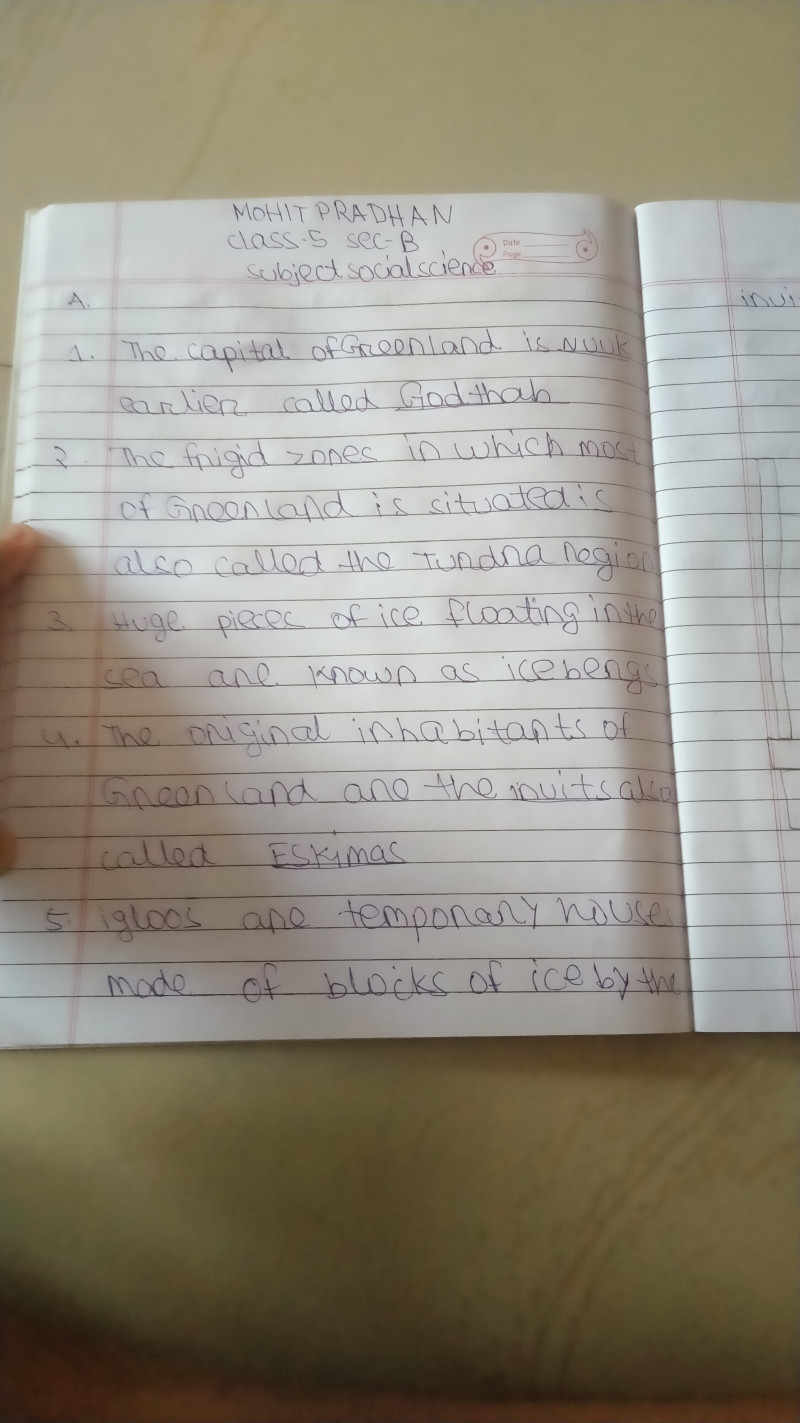 MOHIT PRADHAN
class-5 sec-B
Date
Page
subject.socialscience
A.
1. The capital of Greenland is Nuuk
earlier called Godthab
2. The frigid zones in which most
of Greenland is situated is
also called the Tundra region
3. Huge pieces of ice floating in the
sea are known as icebergs
4. The original inhabitants of
Greenland are the inuits also
called ESKimas
5. igloos are temporary house
made of blocks of ice by the
inui